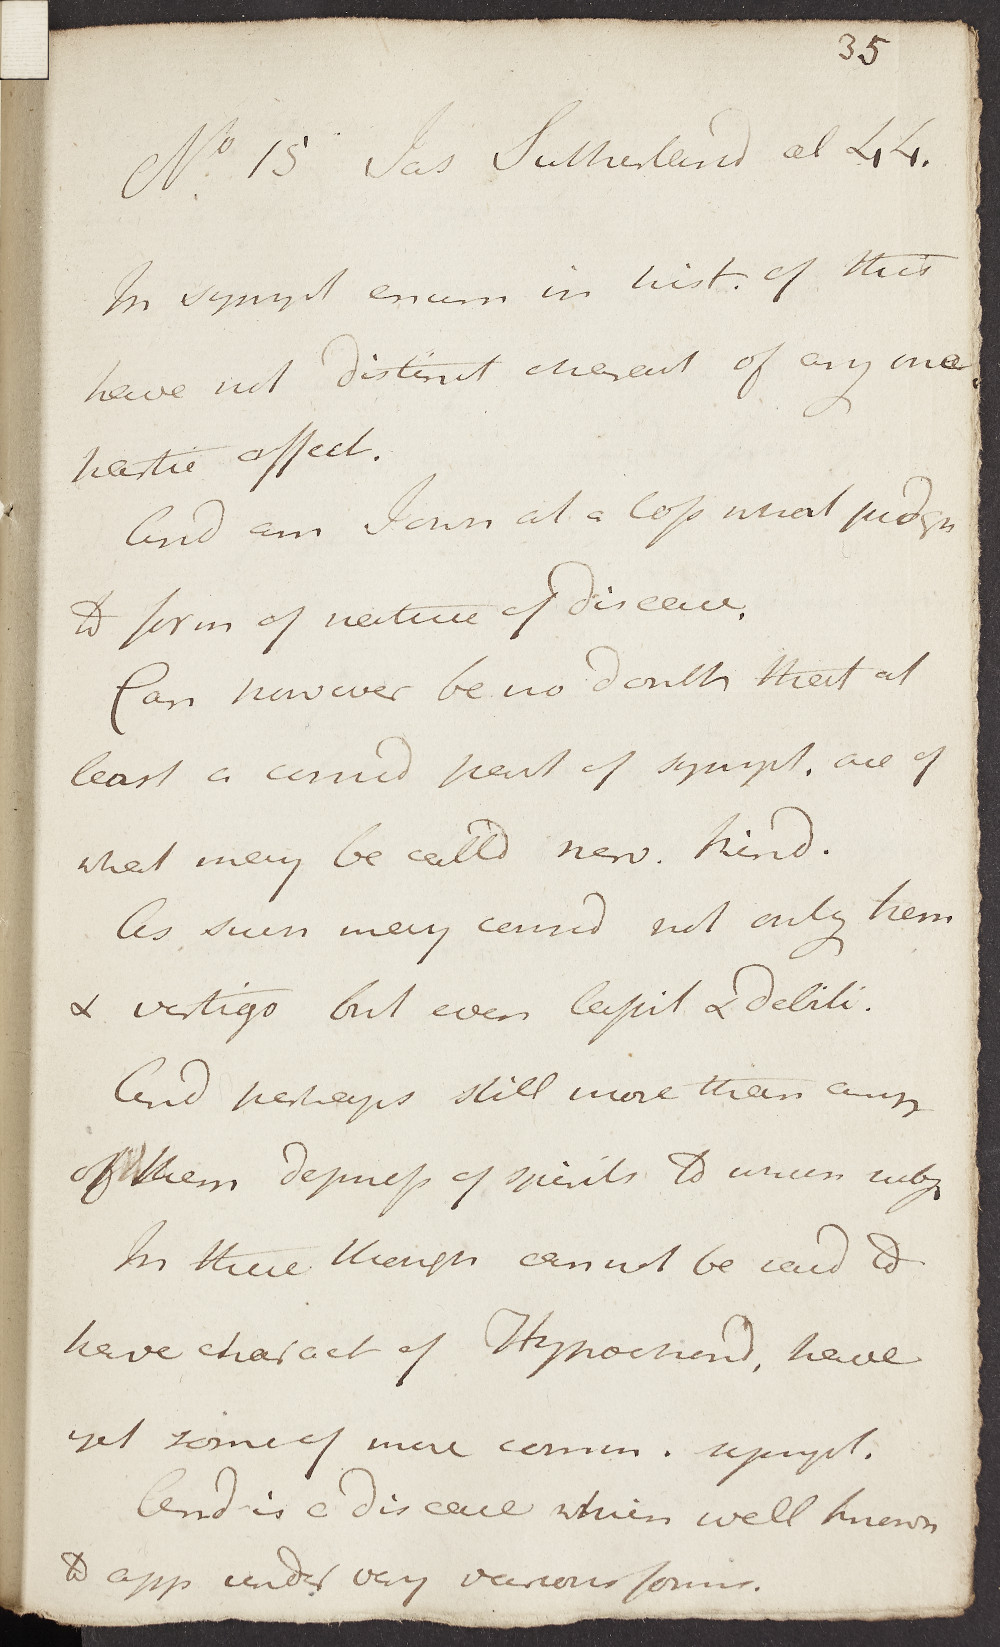 35
No 15 Jas Sutherland æt 44.
In sympt enum in hist. of this
have not distinct charact of any one
partic affect.
And am I own at a loss what judgt
to form of nature of disease.
Can however be no doubt that at
least a consid part of sympt. are of
what may be calld nerv. kind.
As such may consid not only
& vertigo but even & debili.
And perhaps still more than any
of them depress of spirits to which subj
In these though cannot be said to
have charact of Hypochond, have
yet some of more comm. sympt.
And is a disease which well known
to app under very various forms.